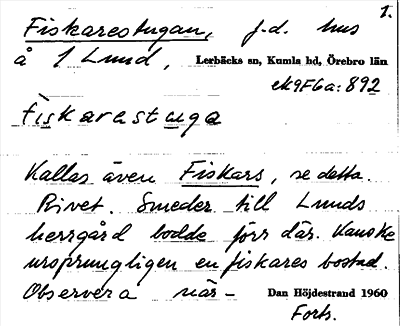 1.
Fiskarestugan, f.d. hus
å f Lund, Lerbäcks sn, Kumla hd, Örebro län
ek9F6a:892
Fiskarastuga
Kallas även Fiskars, se detta.
Rivet. Smeder till Lunds
herrgård bodde förr där. Kanske
ursprungligen en fiskares bostad.
Observera när-
Dan Höjdestrand 1960
Forts.